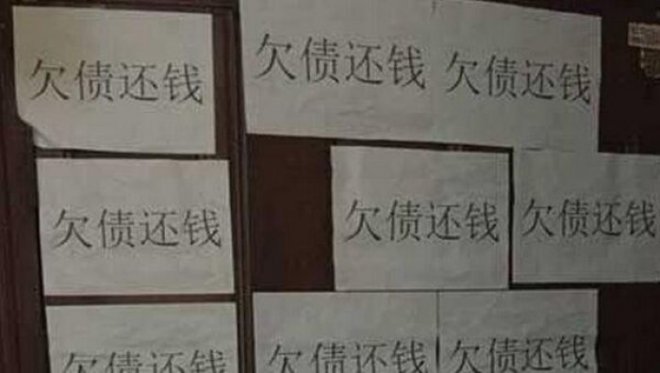 欠债还钱 欠债还钱 欠债还钱
欠债还钱 欠债还钱 欠债还钱
欠债还钱 欠债还钱 欠债还钱